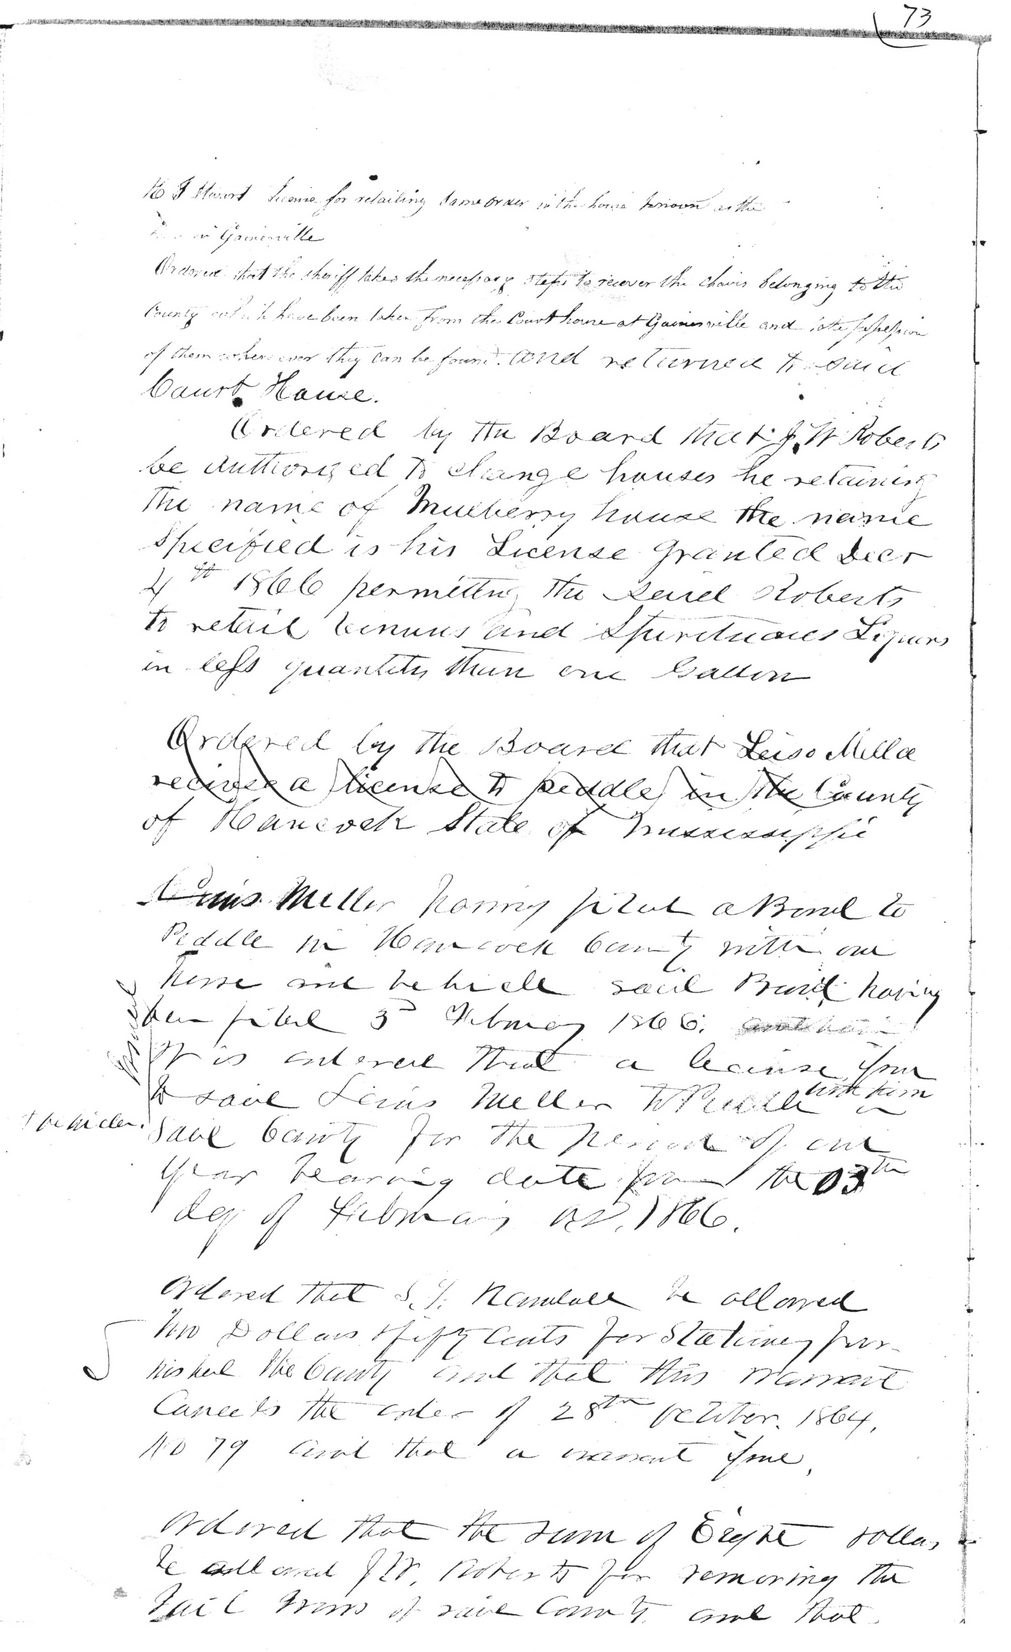 73
license for retailing same order in the house known as the
in Gainesville
Ordered that the sheriff takes the necessary steps to recover the chairs belonging to the
County which have been taken from the Court house at Gainesville and take possession
of them where ever they can be found. and returned to said
Court House.
Ordered by the Board that J. W Roberts
be Authorized to change houses he retaining
the name of Mulberry house the name
specified is his License granted Decr
4th 1866 permitting the said Roberts
to retail Vinous and Spirituous Liquors
in less quantity than one Gallon
Ordered by the Board that Leiso Mella
recivea a license to peddle in the County
of Hancock State of Mississippi
Miller having filed a Bond to
Peddle in Hancock County with one
horse and vehicle said Bond having
been filed 3d February 1866.
It is ordered that a license issue
to said Lewis Miller to Peddle with him in
& vehicle.
said County for the period of one
year bearing date from the 03th
day of February AD. 1866.
Ordered that S. T. Randall be allowed
two Dollars & fifty Cents for Stationery fur-
nished the County and that this warrant
Cancels the order of 28th October. 1864.
No 79 and that a warrant issue.
Ordered that the sum of Eight dollars
be allowed J. W. Roberts for removing the
Jail Irons of said County and that